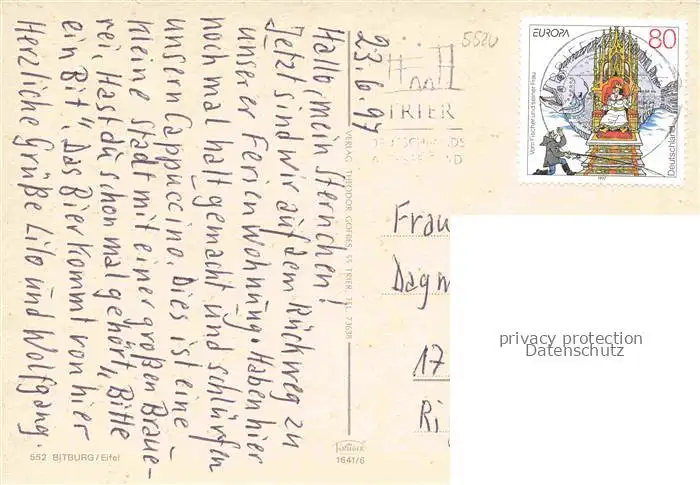 23.6.97
Hallo, mein Sternchen!
Jetzt sind wir auf dem Rückweg zu
unserer Ferienwohnung. Haben hier
noch mal halt gemacht und schlürfen
unsern Cappuccino. Dies ist eine
kleine Stadt mit einer großen Braue-
rei, Hast du schon mal gehört, Bitte
ein Bit". Das Bier kommt von hier
Herzliche Grüße Lilo und Wolfgang.
552 BITBURG/Eifel
VERLAG THEODOR GOFRES, 55 TRIER, TEL. 73638
1641/6
5520
TRIER
EUROPA
80
Vom Fischer und seiner Frau
Deutschland
1997
Frau
Dagm
17
Ri
privacy protection
Datenschutz